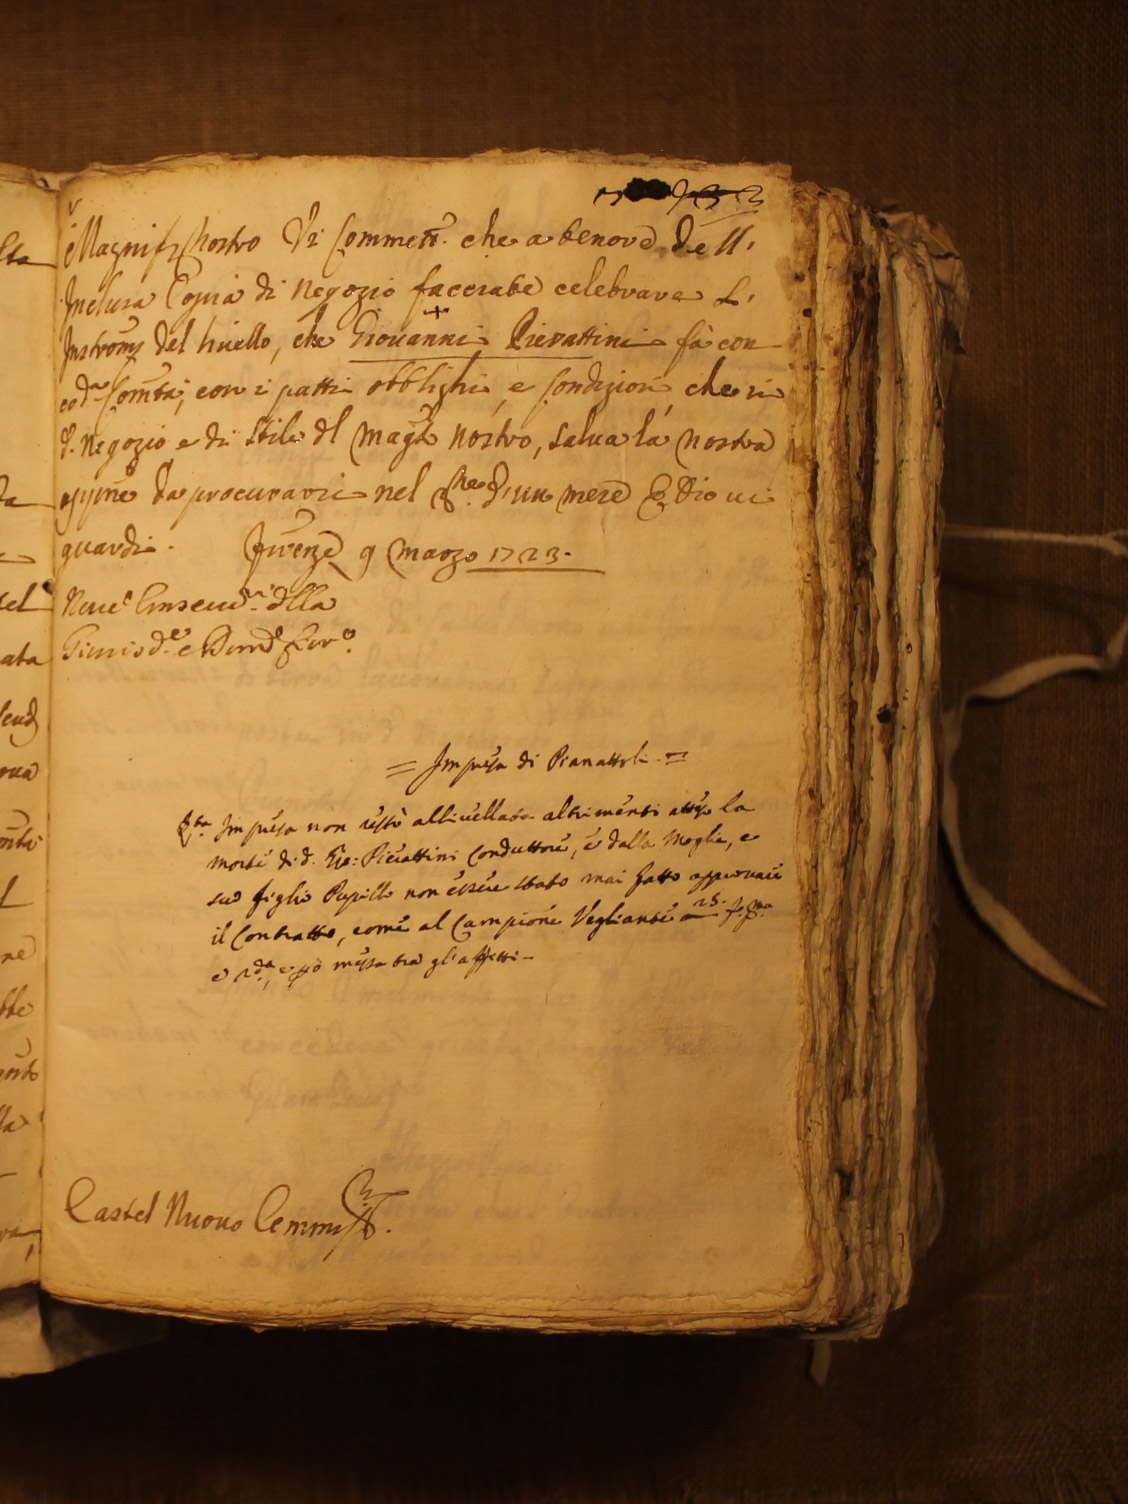 Magnif. nostro Vi Commett. che a tenore dell'
Inclusa Copia di negozio facciate celebrare l'
Instrom. del livello, che Giovanni Pierattini fà con
cod.a Comtà, con i patti obblighi e condizioni che in
d. negozio e di stile dl mag.to nostro, salva la nostra
approne da procurarsi nel d'un mese E Dio vi
guardi. Firenze 9 Marzo 1723.
Nove Conserv.ri dlla
Giurisd.e e Dom.o Fior.o
= Impresa di Pianattoli =
D.ta Impresa non restò allivellata altrimenti atteso la
morte di d. Gio: Pierattini Conduttore, e dalla Moglie, e
suo figlio Pupillo non essere stato mai fatto approvare
il Contratto, come al Campione Vegliante a 25. p.ma
e 2.da, e però messa tra gl'affitti
Castel Nuovo